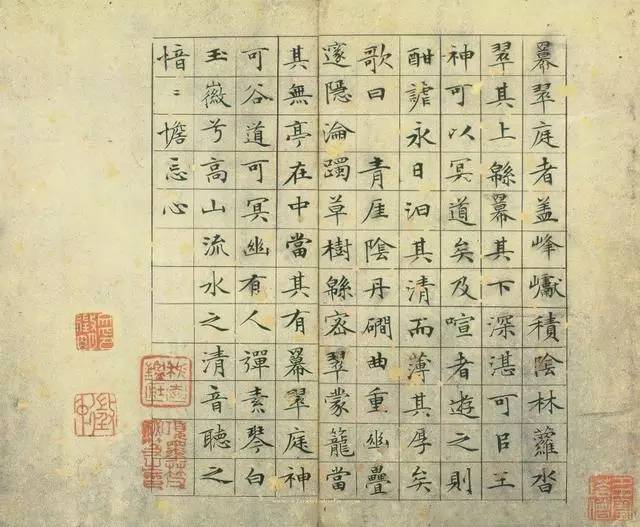 羃翠庭者盖峰巘積陰林蘿沓
翠其上緜羃其下深湛可㠯王
神可以冥道矣及喧者遊之則
酣謔永日汨其清而薄其厚矣
歌曰 青崖陰丹磵曲重幽疊
邃隱淪躅草樹緜密翠蒙籠當
其無亭在中當其有羃翠庭神
可谷道可冥幽有人彈素琴白
玉徽兮高山流水之清音聽之
愔〻憺忘心